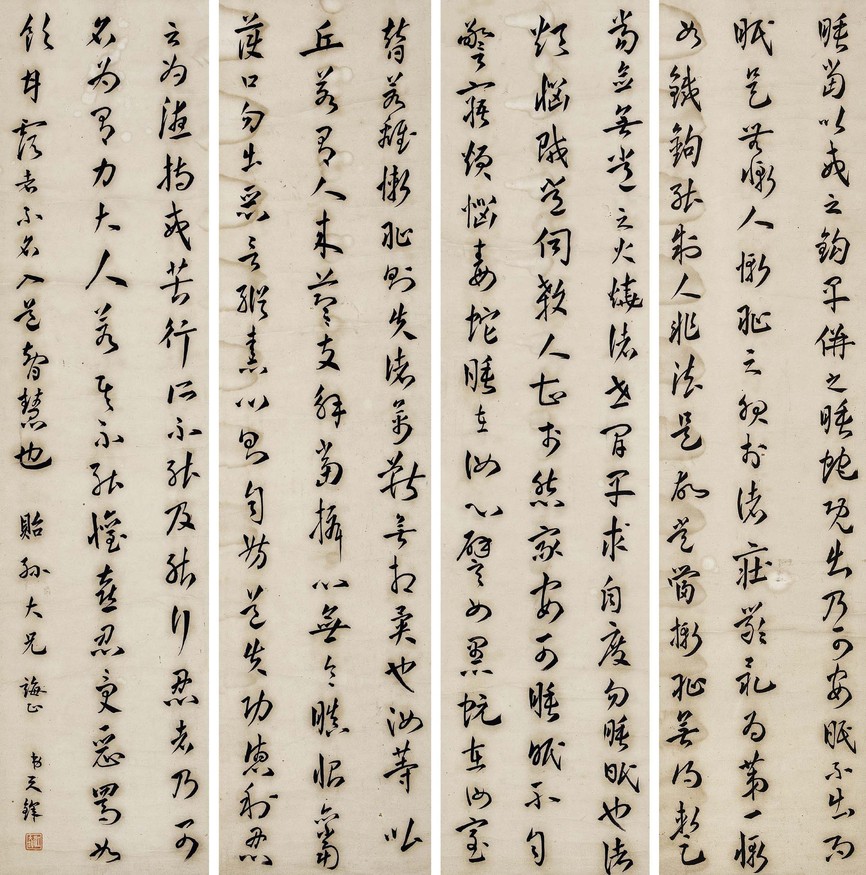 睡當以戒之鈎早併之睡蛇既出乃可安眠不出而
眠是無慚人慚恥之服於諸莊嚴最為第一慚
如鐵鈎能制人非法是故常當慚恥無得暫
當念無常之火燒諸世間早求自度勿睡眠也諸
煩惱賊常伺殺人甚於怨家安可睡眠不自
警寤煩惱毒蛇睡在汝心譬如黑蚖在汝室
替若離慚恥則失諸禽獸無相異也汝等比
丘若有人來節節支解當攝心無令瞋恨亦當
護口勿出惡言縱恚心則自妨道失功德利忍
之為德持戒苦行所不能及能行忍者乃可
名為有力大人若其不能懽喜忍受惡罵如
飲甘露者不名入道智慧也 貽孫大兄 誨正